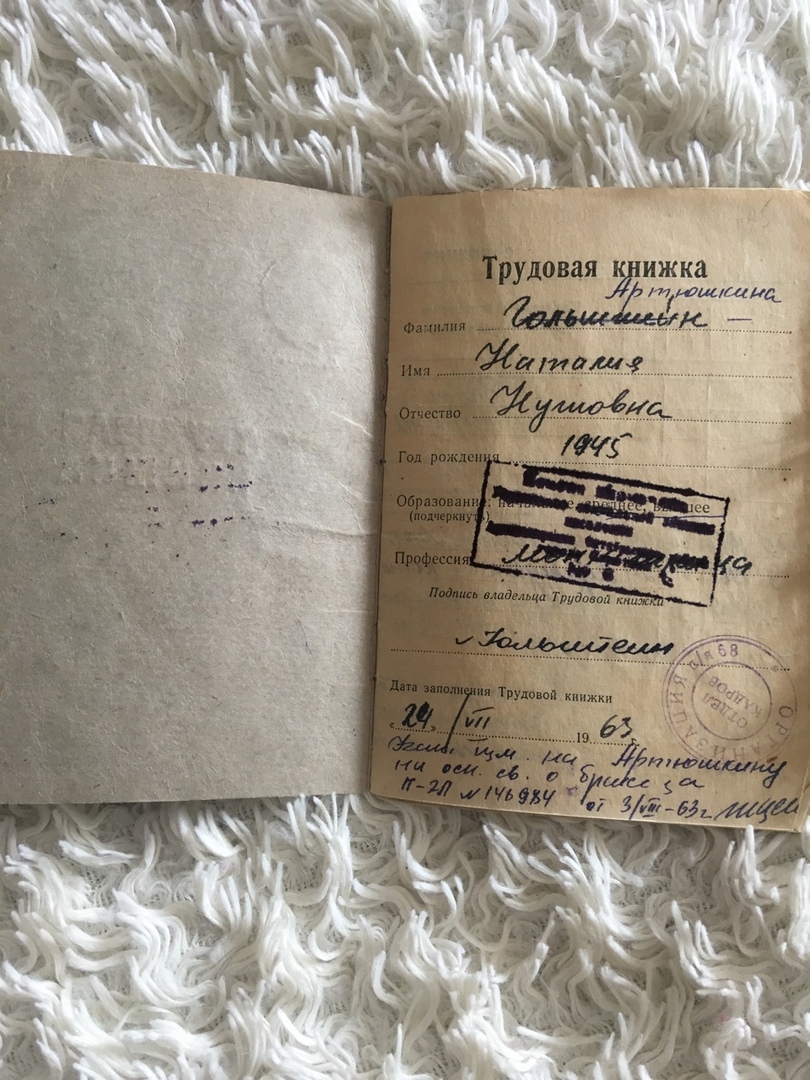 Трудовая книжка
Артюшкина
Фамилия Гольштын —
Имя Наталия
Отчество Нутовна
Год рождения 1945
Образование: начальное, среднее, высшее
(подчеркнуть)
Профессия
№ 6
Подпись владельца Трудовой книжки
Гольштеин
Дата заполнения Трудовой книжки
„24„ /VII 1963 г.
ОРГАНИЗАЦИЯ п/я 68
ОТДЕЛ
КАДРОВ
изм. на Артюшкину
на осн. св. о браке за
II-ЗЛ №146984 от 3/VIII-63г